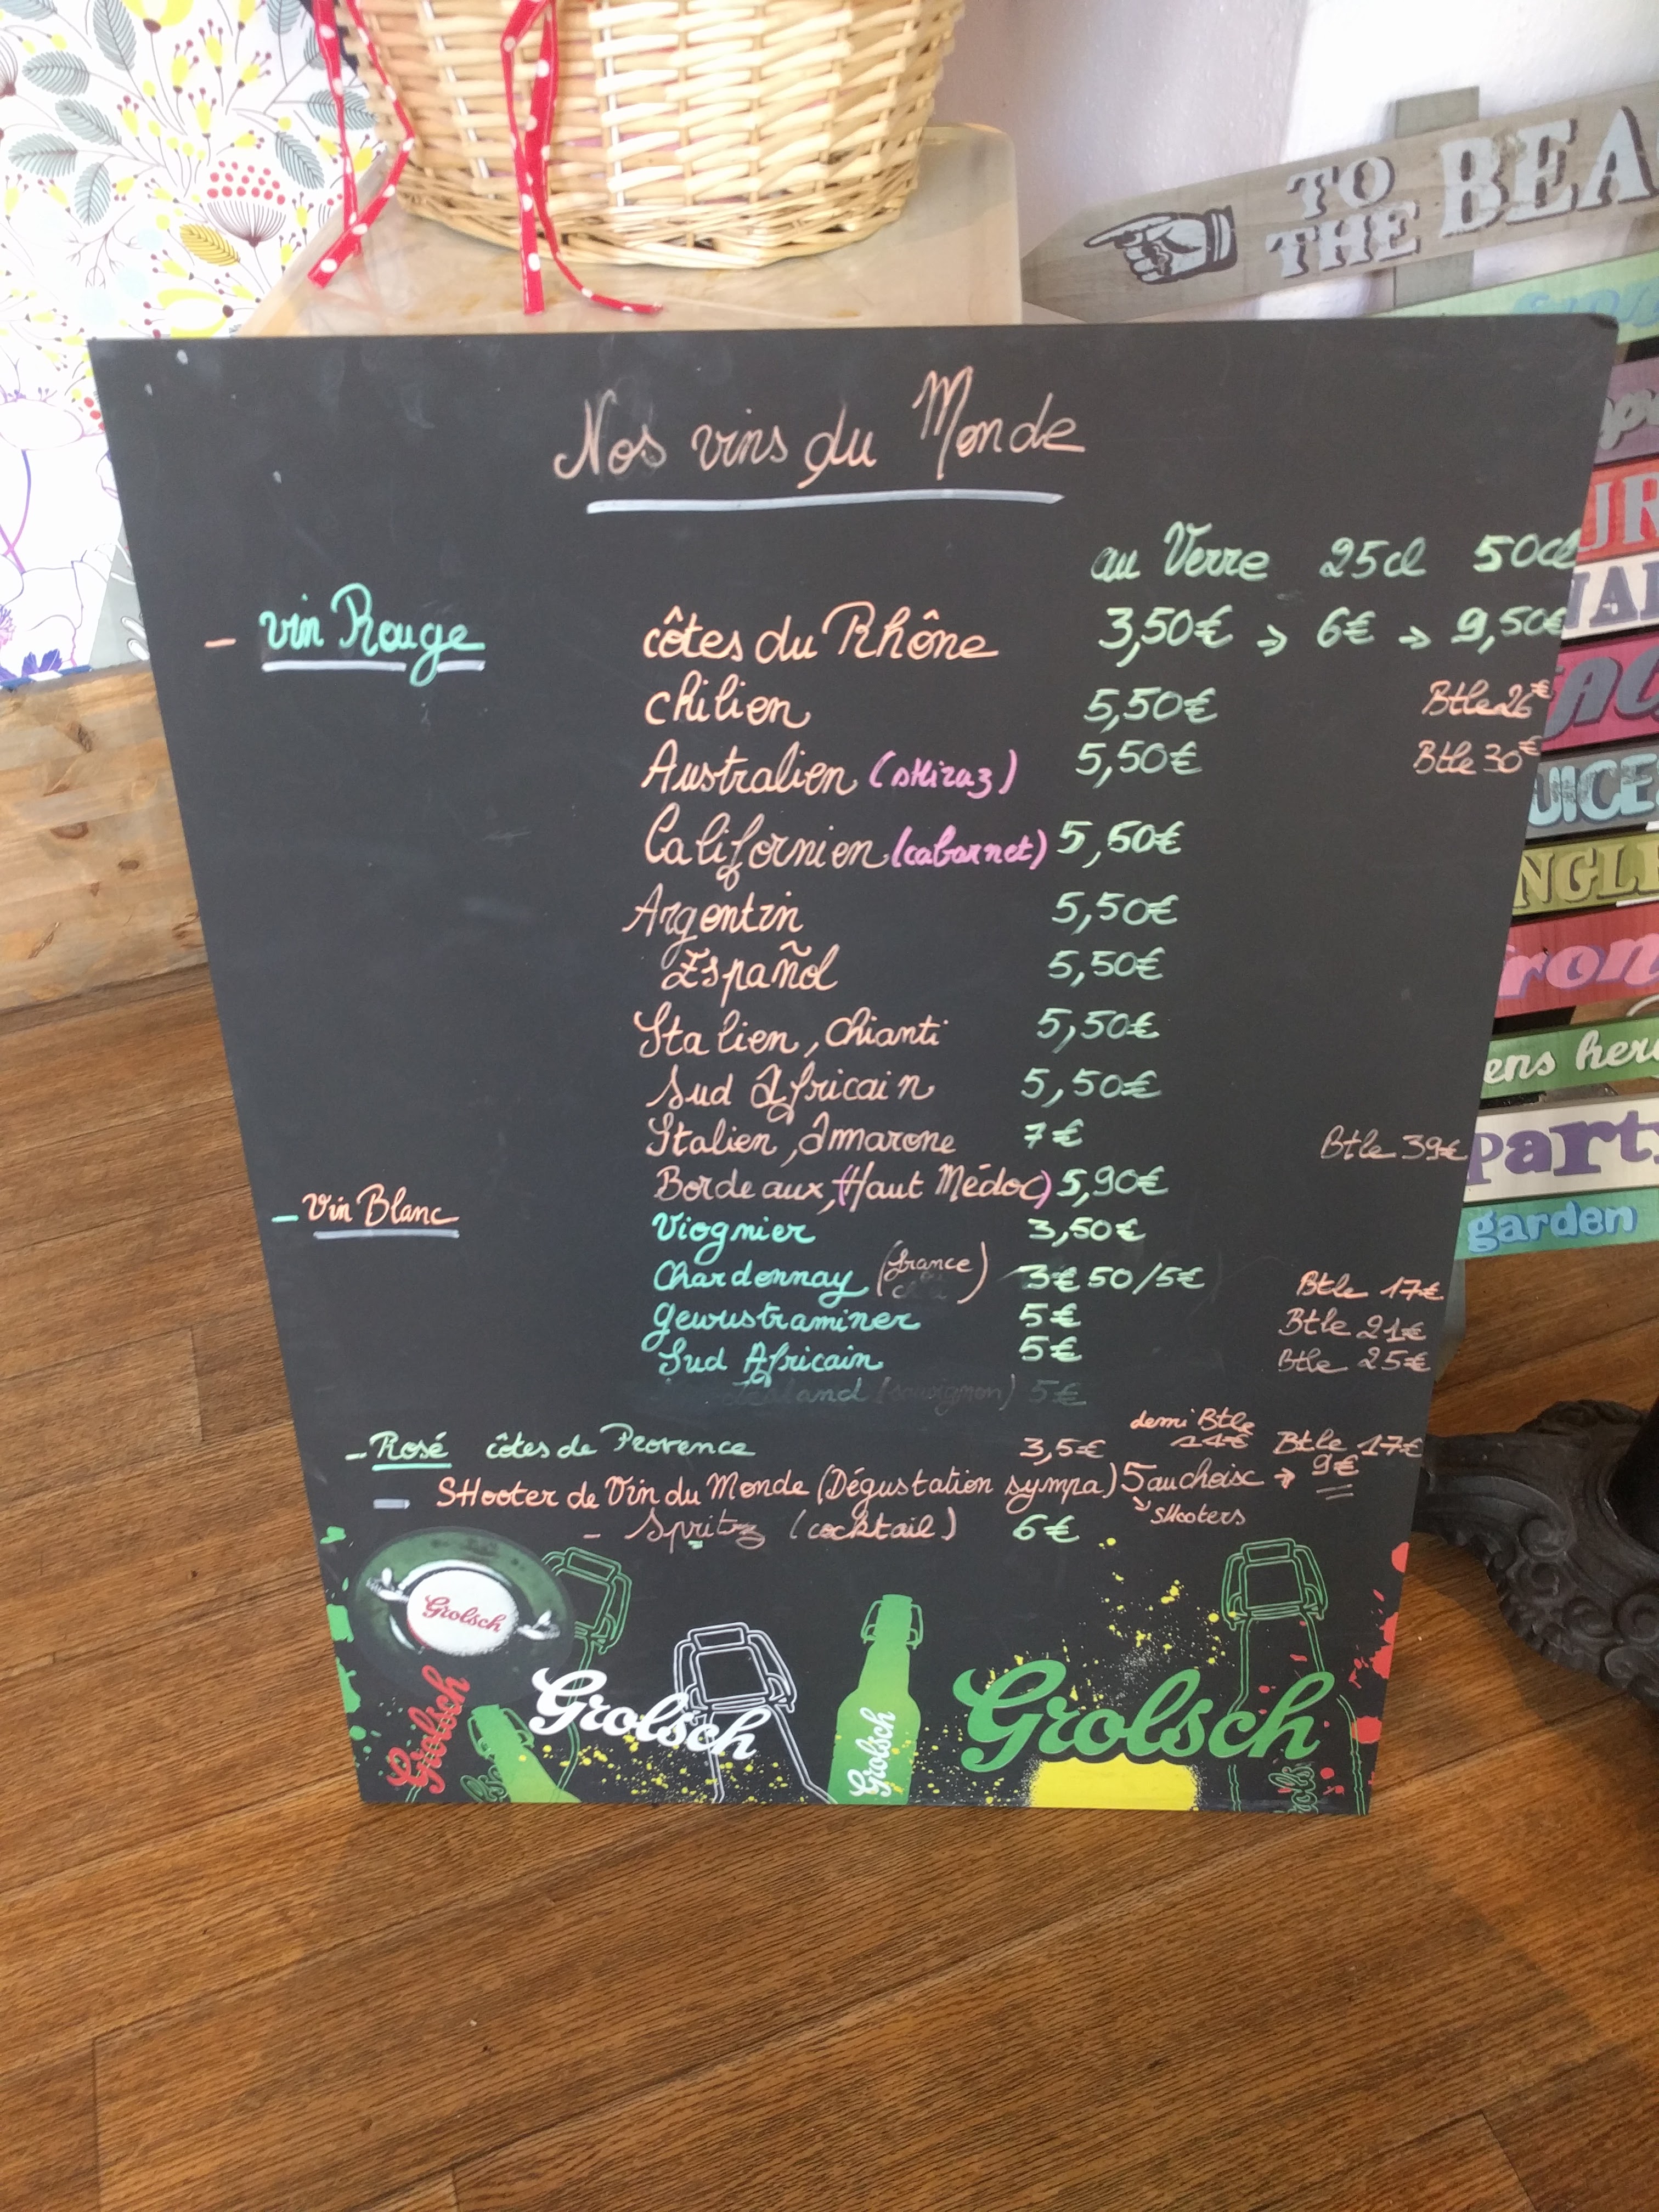 TO THE BEA
Nos vins du Monde
au Verre 25cl 50cl
- vin Rouge côtes du Rhône 3,50€ → 6€ → 9,50€
chilien 5,50€ Btle 26€
Australien (sHiraz) 5,50€ Btle 30€
Californien (cabarnet) 5,50€
Argentin 5,50€
Español 5,50€
Italien, Chianti 5,50€
Sud Africain 5,50€
Italien, Amarone 7€ Btle 39€
Bordeaux, (Haut Médoc) 5,90€
- Vin Blanc
Viognier 3,50€
Chardonnay (france) 3€50/5€ Btle 17€
gewustraminer 5€ Btle 21€
Sud Africain 5€ Btle 25€
(sauvignon) 5€
- Rosé côtes de Provence 3,5€ demi Btle 11€ Btle 17€
- SHooter de Vin du Monde (Dégustation sympa) 5 au choix → 9€
SHooters
- Spritz (cocktail) 6€
Grolsch
Grolsch
Grolsch
Grolsch
Grolsch
UR
UICE
NGLE
ron
ens here
party
garden